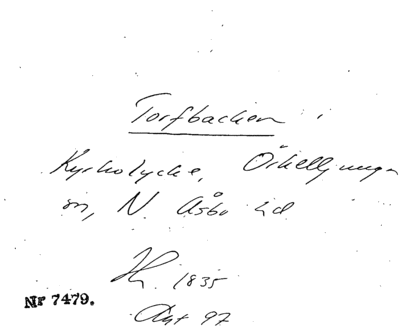 Torfbacken i
Kyrkolycke, Örkelljunga
sn, N. Åsbo hd
1835
Nr 7479.
97